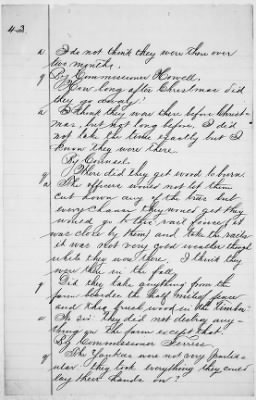 43
a I do not think they were than over
two months.
q By Commissioner Howell.
How long after Christmas did
they go away?
a I think they was there before Christ-
mas, but not long before. I did
not take the time exactly but I
know they were there.
By Counsel
q Where did they get wood to burn.
a The officers would not let them
cut down any of the trees but
every chance they would get they
would go to the rail fence (it
was close by them) and take the rails
it was not very good weather though
while they was there. I think they
were there in the fall
q Did they take anything from the
farm besides the half mile of fence
and this wood in the timber
a No sir they did not destroy any-
thing on the farm except that.
By Commissioner Ferriss
q The Yankees was not very particu-
lar they took everything they could
lay their hands on?